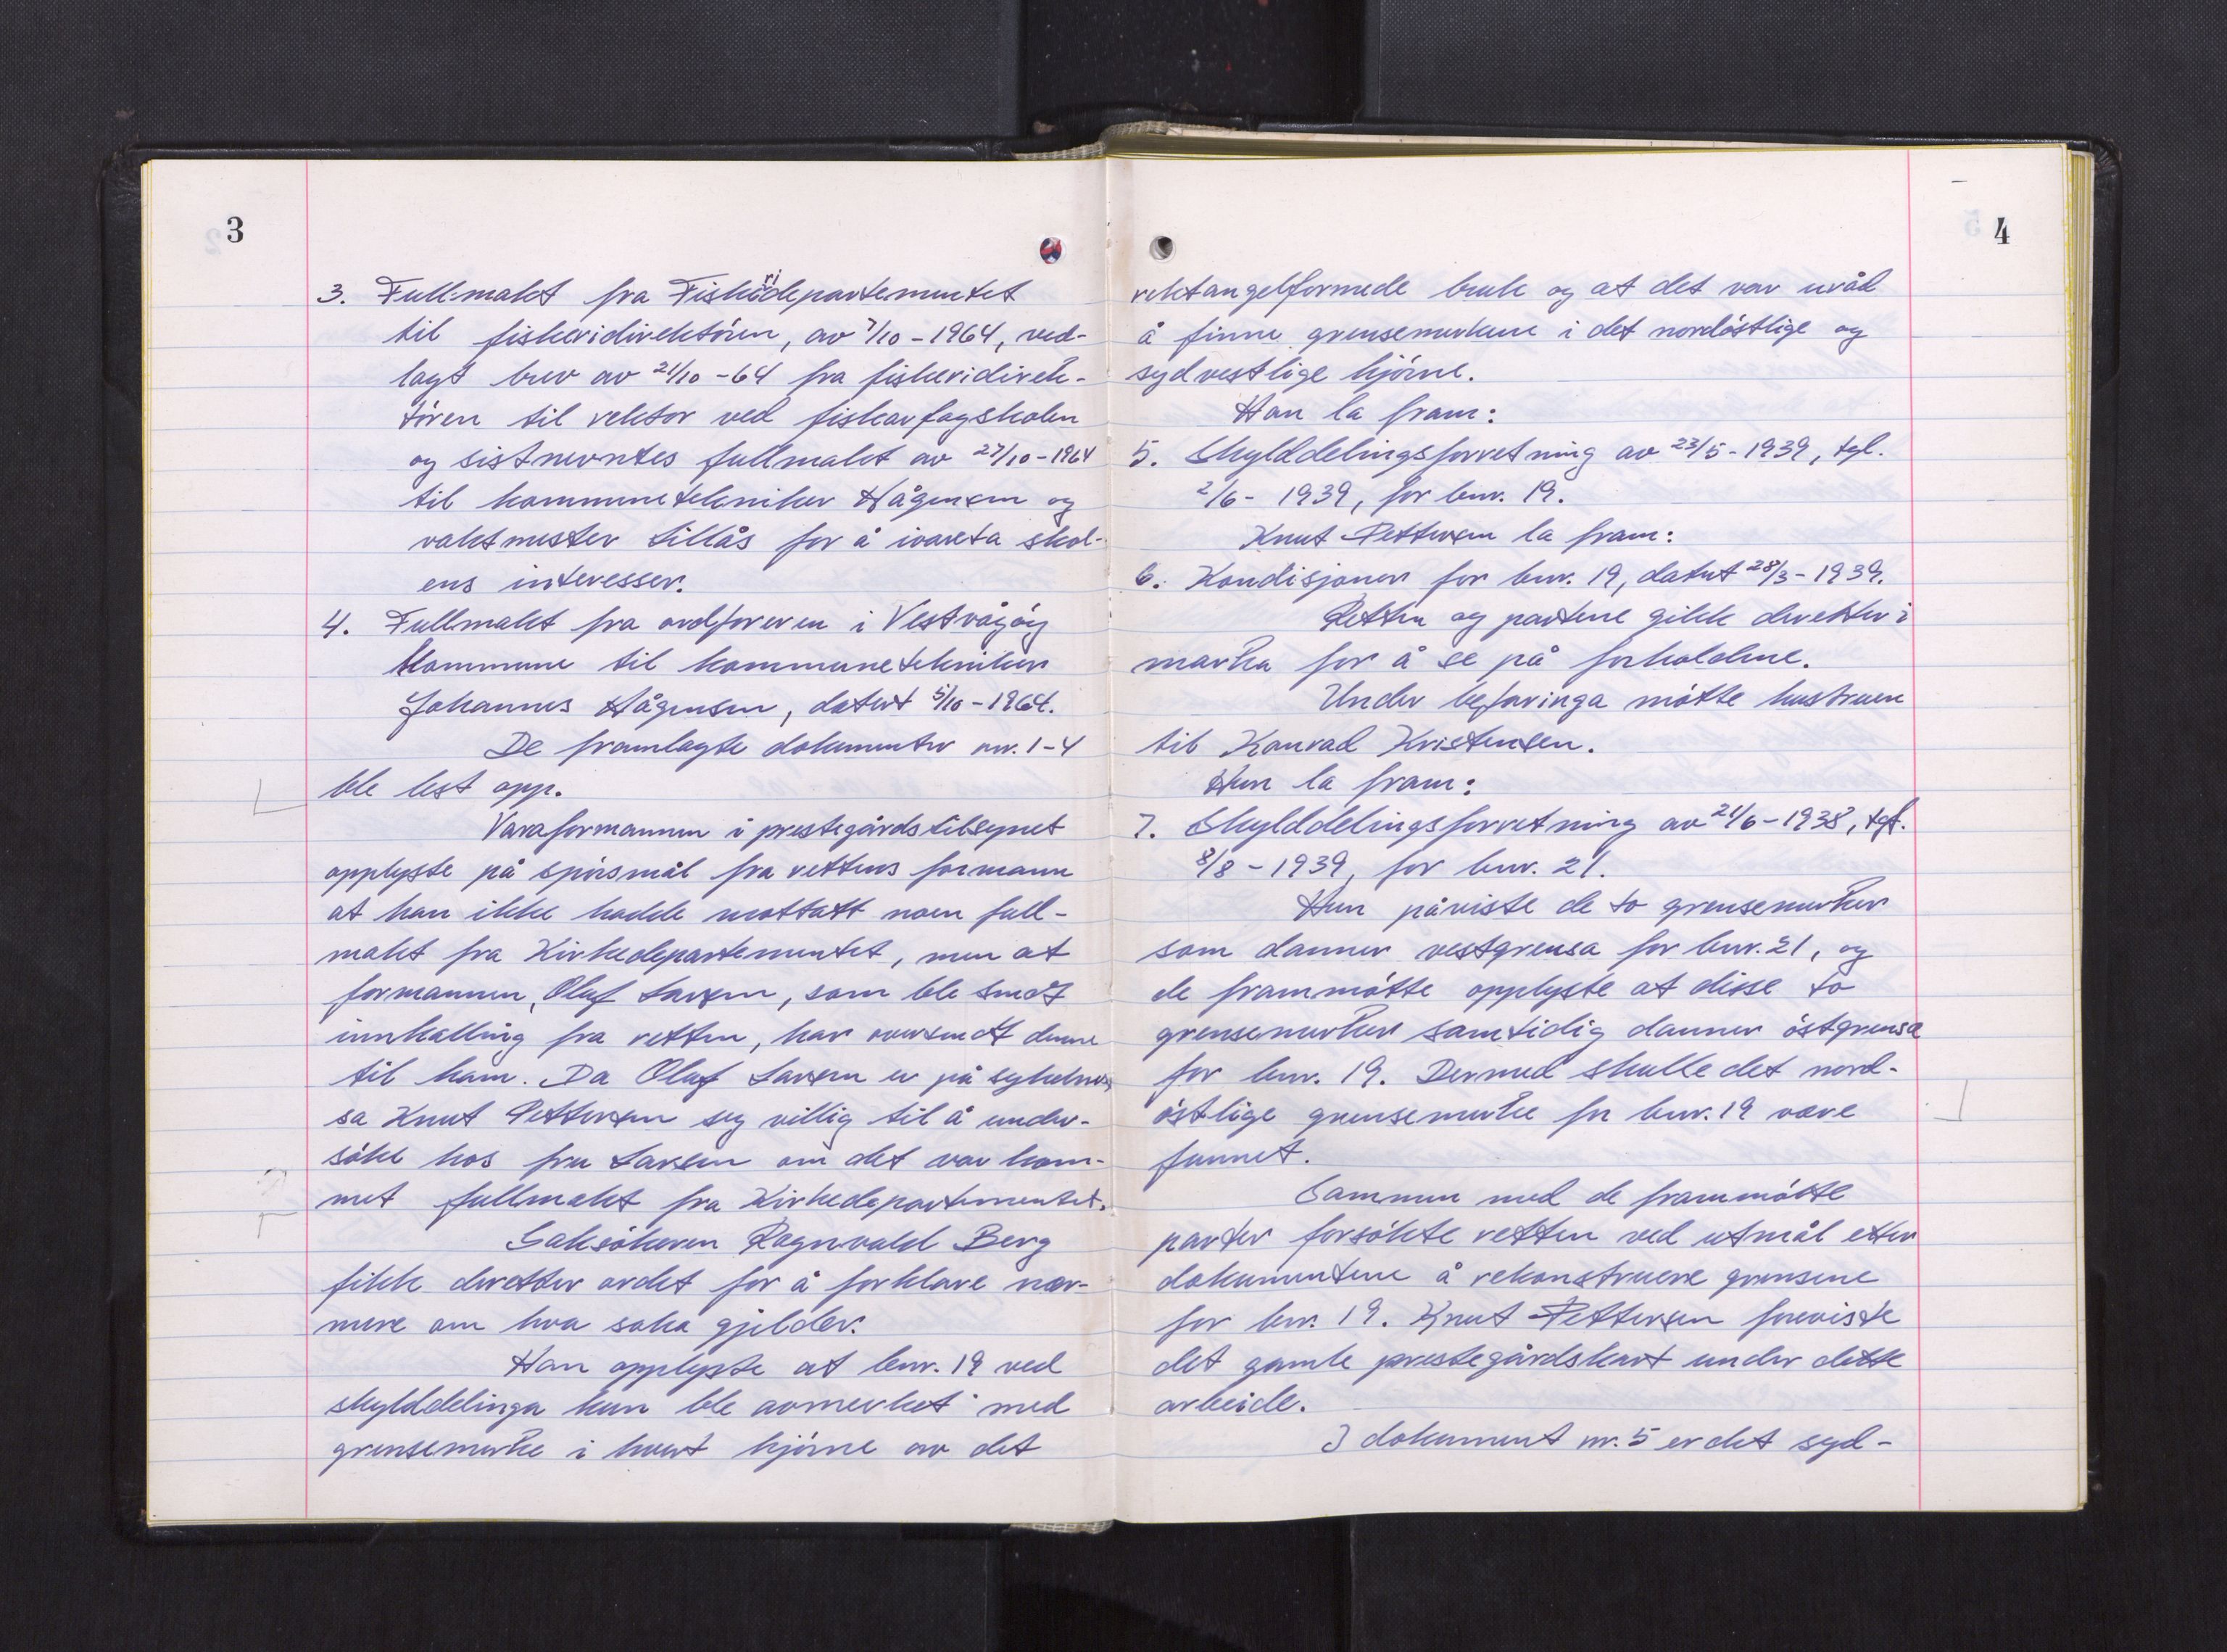 3
3. Fullmakt fra Fiskeridepartementet
til fiskeridirektören, av 7/10-1964, ved-
lagt brev av 21/10-64 fra fiskeridirek-
tören til rektor ved fiskarfagskolen
og sistnevntes fullmakt av 27/10-1964
til kommunetekniker Hågensen og
vaktmester Lillås for å ivareta skol-
ens interesser.
4. Fullmakt fra ordföreren i Vestvågöy
Kommune til kommunetekniker
Johannes Hågensen, datert 5/10-1964.
De framlagte dokumenter nr. 1-4
ble lest opp.
Varaformannen i prestegårdstilsynet
opplyste på spörsmål fra rettens formann
at han ikke hadde mottatt noen full-
makt fra Kirkedepartementet, men at
formannen, Olaf Larsen, som ble sendt
innkalling fra retten, har oversendt denne
til ham. Da Olaf Larsen er på sykehus,
sa Knut Pettersen seg villig til å under-
söke hos fru Larsen om det var kom-
met fullmakt fra Kirkedepartementet.
Saksökeren Ragnvald Berg
fikk deretter ordet for å forklare nær-
mere om hva saka gjelder.
Han opplyste at bnr. 19 ved
skylddelinga kun ble avmerket med
grensemerke i hvert hjörne av det
4
rektangelformede bruk og at det var uråd
å finne grensemerkene i det nordöstlige og
sydvestlige hjörne.
Han la fram:
5. Skylddelingsforretning av 23/5-1939, tgl.
2/6-1939, for bnr. 19.
Knut Pettersen la fram:
6. Kondisjoner for bnr. 19, datert 28/3-1939.
Retten og partene gikk deretter i
marka for å se på forholdene.
Under befaringa mötte hustruen
til Konrad Kristensen.
Hun la fram:
7. Skylddelingsforretning av 21/6-1938, tgl.
8/8-1939, for bnr. 21.
Hun påviste de to grensemerker
som danner vestgrensa for bnr. 21, og
de frammötte opplyste at disse to
grensemerker samtidig danner östgrensa
for bnr. 19. Dermed skulle det nord-
östlige grensemerke for bnr. 19 være
funnet.
Sammen med de frammötte
parter forsökte retten ved utmål etter
dokumentene å rekonstruere grensene
for bnr. 19. Knut Pettersen foreviste
det gamle prestegårdskart under dette
arbeide.
I dokument nr. 5 er det syd-